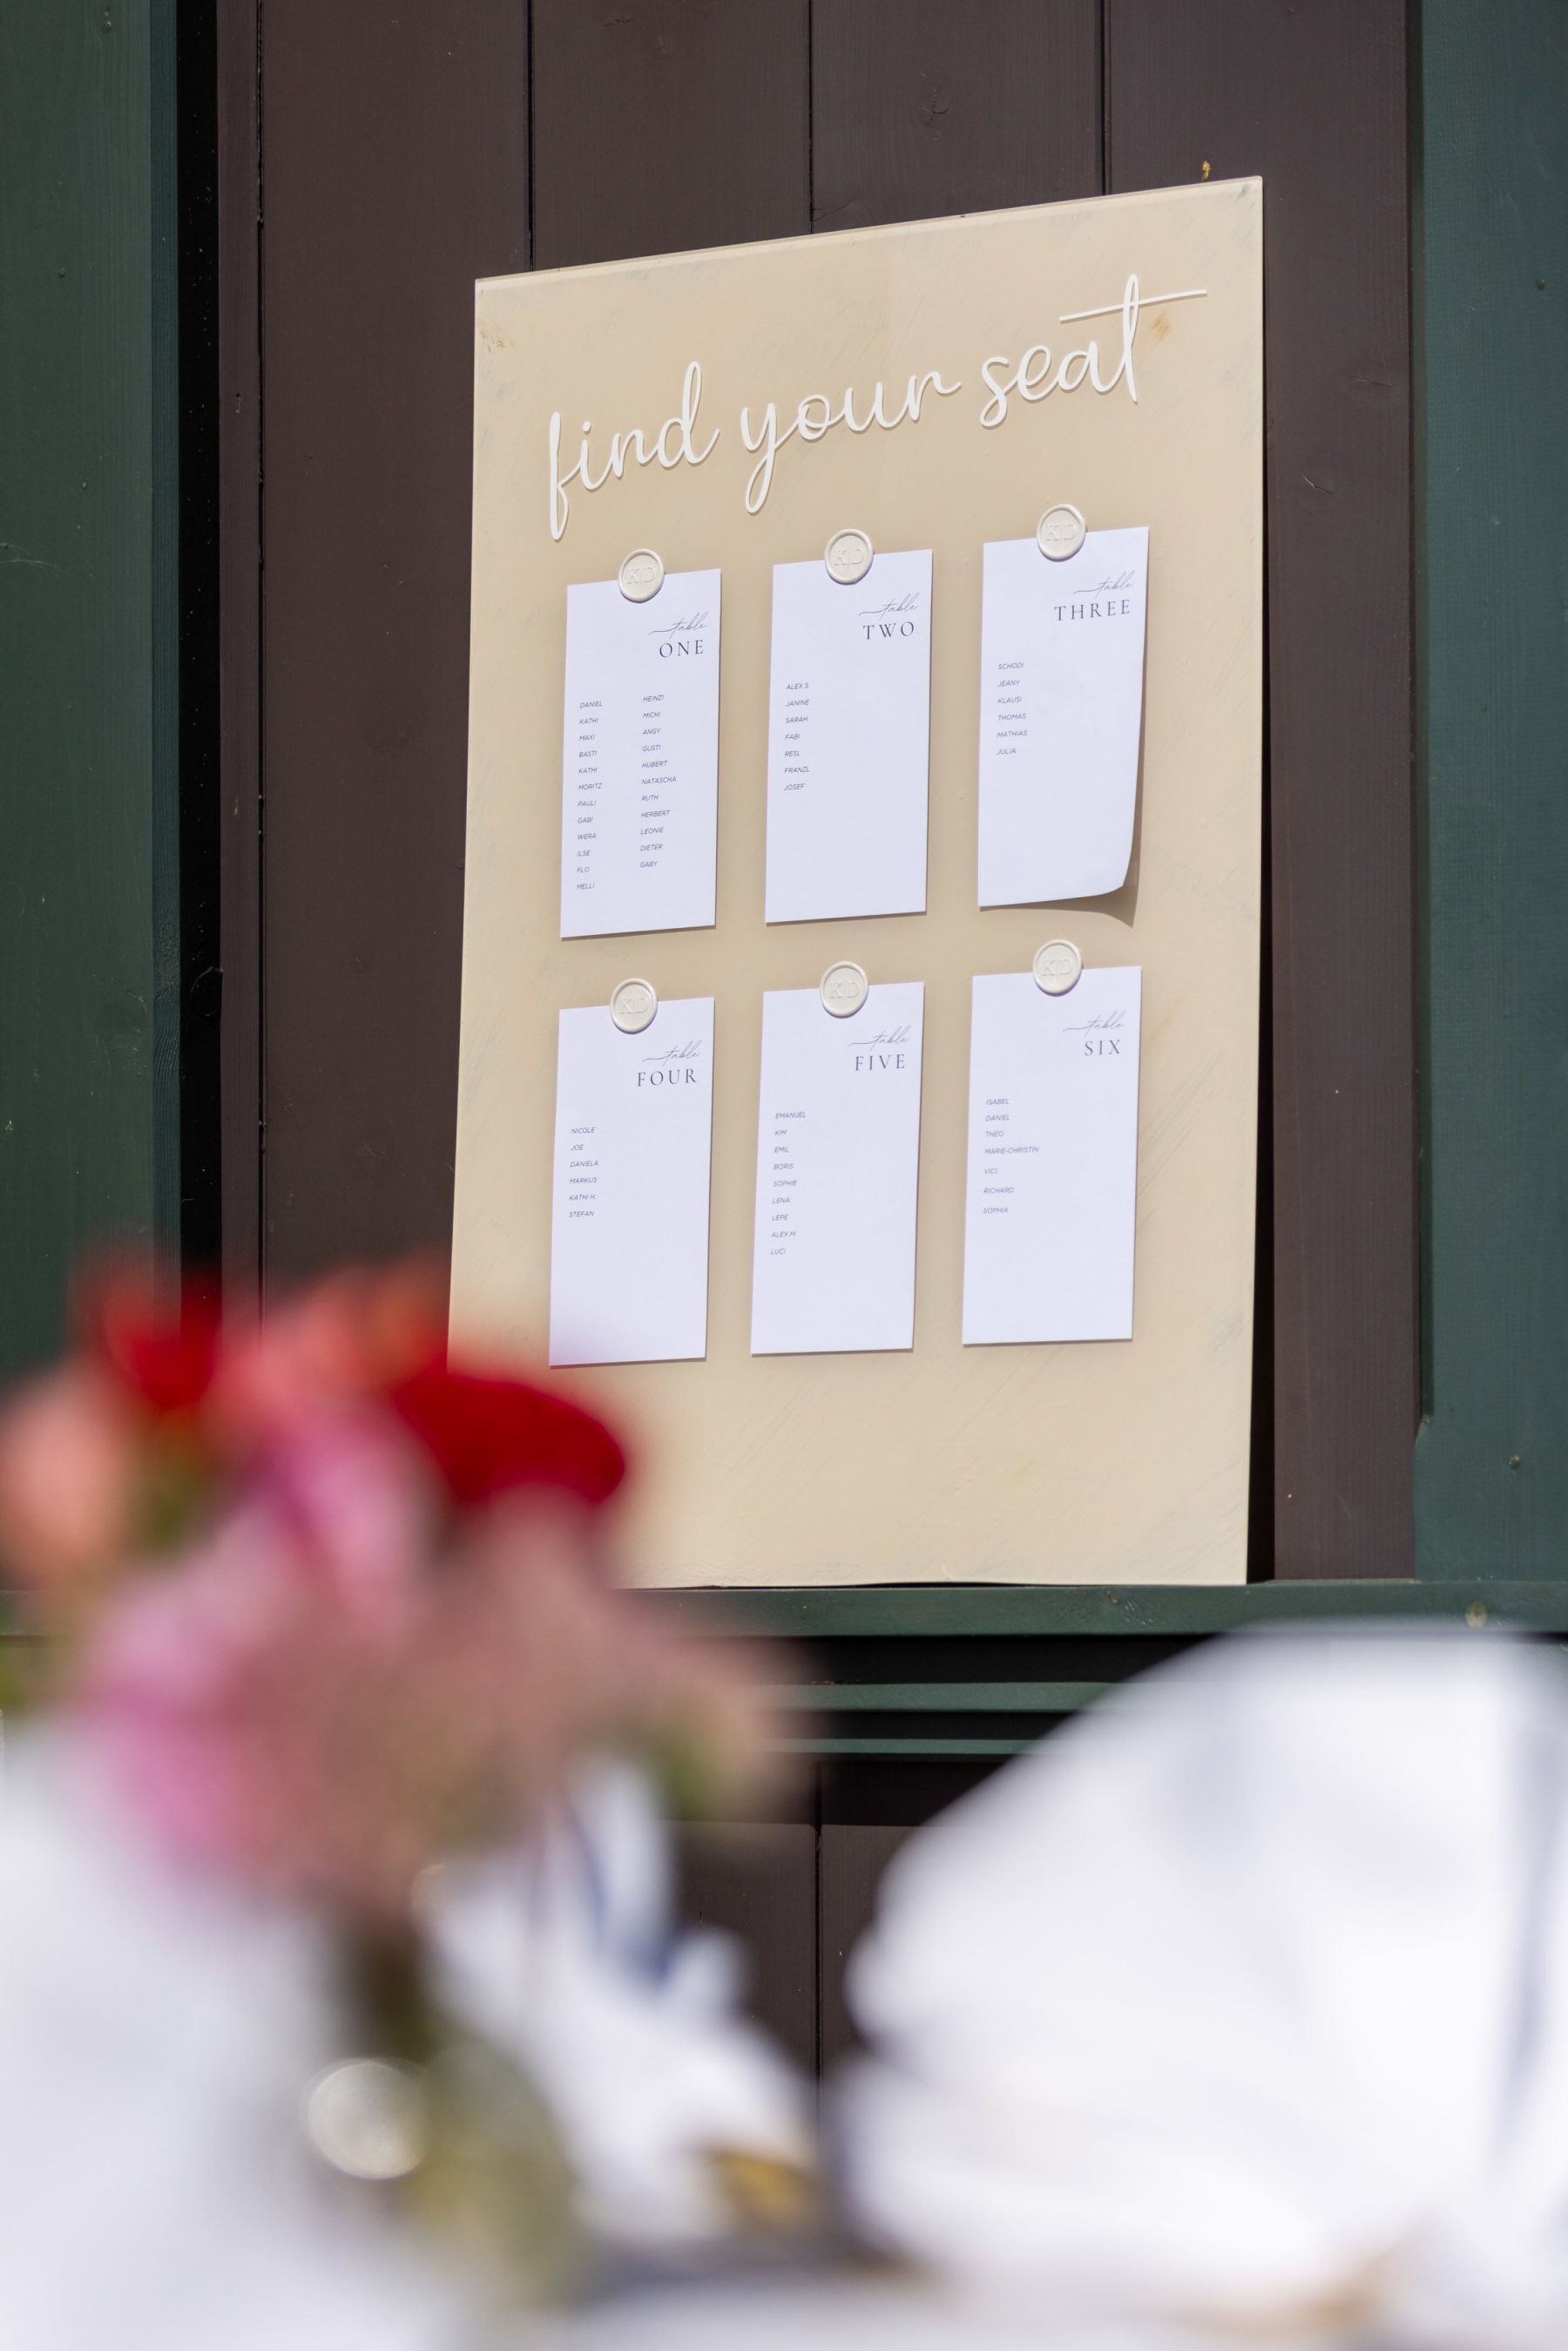 find your seat
KD
table
ONE
DANIEL
KATHI
MAXI
BASTI
KATHI
MORITZ
PAULI
GABI
WERA
ILSE
FLO
MELLI
HEINZI
MICHI
ANGY
GUSTI
HUBERT
NATASCHA
RUTH
HERBERT
LEONIE
DIETER
GABY
KD
table
TWO
ALEX S.
JANINE
SARAH
FABI
RESL
FRANZL
JOSEF
KD
table
THREE
SCHODI
JEANY
KLAUSI
THOMAS
MATHIAS
JULIA
KD
table
FOUR
NICOLE
JOE
DANIELA
MARKUS
KATHI H.
STEFAN
KD
table
FIVE
EMANUEL
KIM
EMIL
BORIS
SOPHIE
LENA
LEPE
ALEX M.
LUCI
KD
table
SIX
ISABEL
DANIEL
THEO
MARIE-CHRISTIN
VICI
RICHARD
SOPHIA